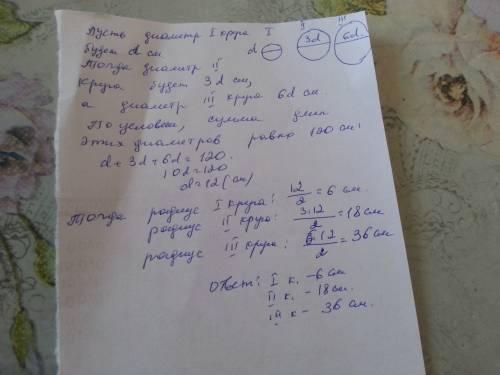 Пусть диаметр I круга I II III
будет d см d 3d 6d
Тогда диаметр II
круга будет 3d см,
а диаметр III круга 6d см.
По условию, сумма длин
этих диаметров равна 120 см
d + 3d + 6d = 120.
10d = 120
d = 12 (см)
Тогда радиус I круга: 12/2 = 6 см.
радиус II круга: 3·12/2 = 18 см
радиус III круга: 6·12/2 = 36 см
Ответ: I к. - 6 см
II к. - 18 см.
III к - 36 см.